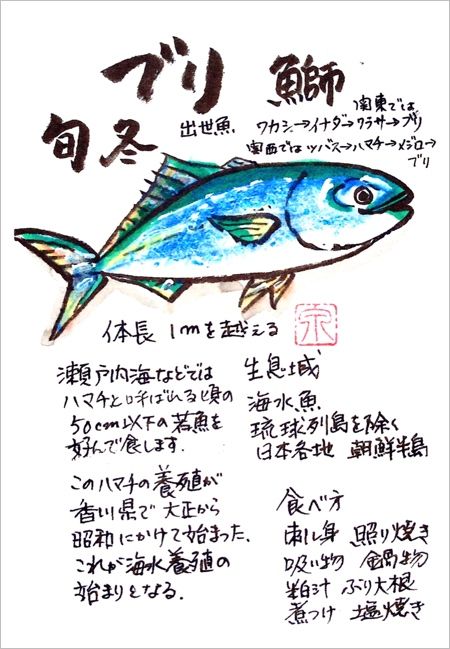 ブリ 鰤
旬 冬
出世魚
関東では
ワカシ→イナダ→ワラサ→ブリ
関西では ツバス→ハマチ→メジロ→
ブリ
体長 1mを越える
瀬戸内海などでは
ハマチと呼ばれる頃の
50cm以下の若魚を
好んで食します.
このハマチの養殖が
香川県で大正から
昭和にかけて始まった.
これが海水養殖の
始まりとなる.
生息域
海水魚
琉球列島を除く
日本各地 朝鮮半島
食べ方
刺し身 照り焼き
吸い物 鍋物
粕汁 ぶり大根
煮つけ 塩焼き